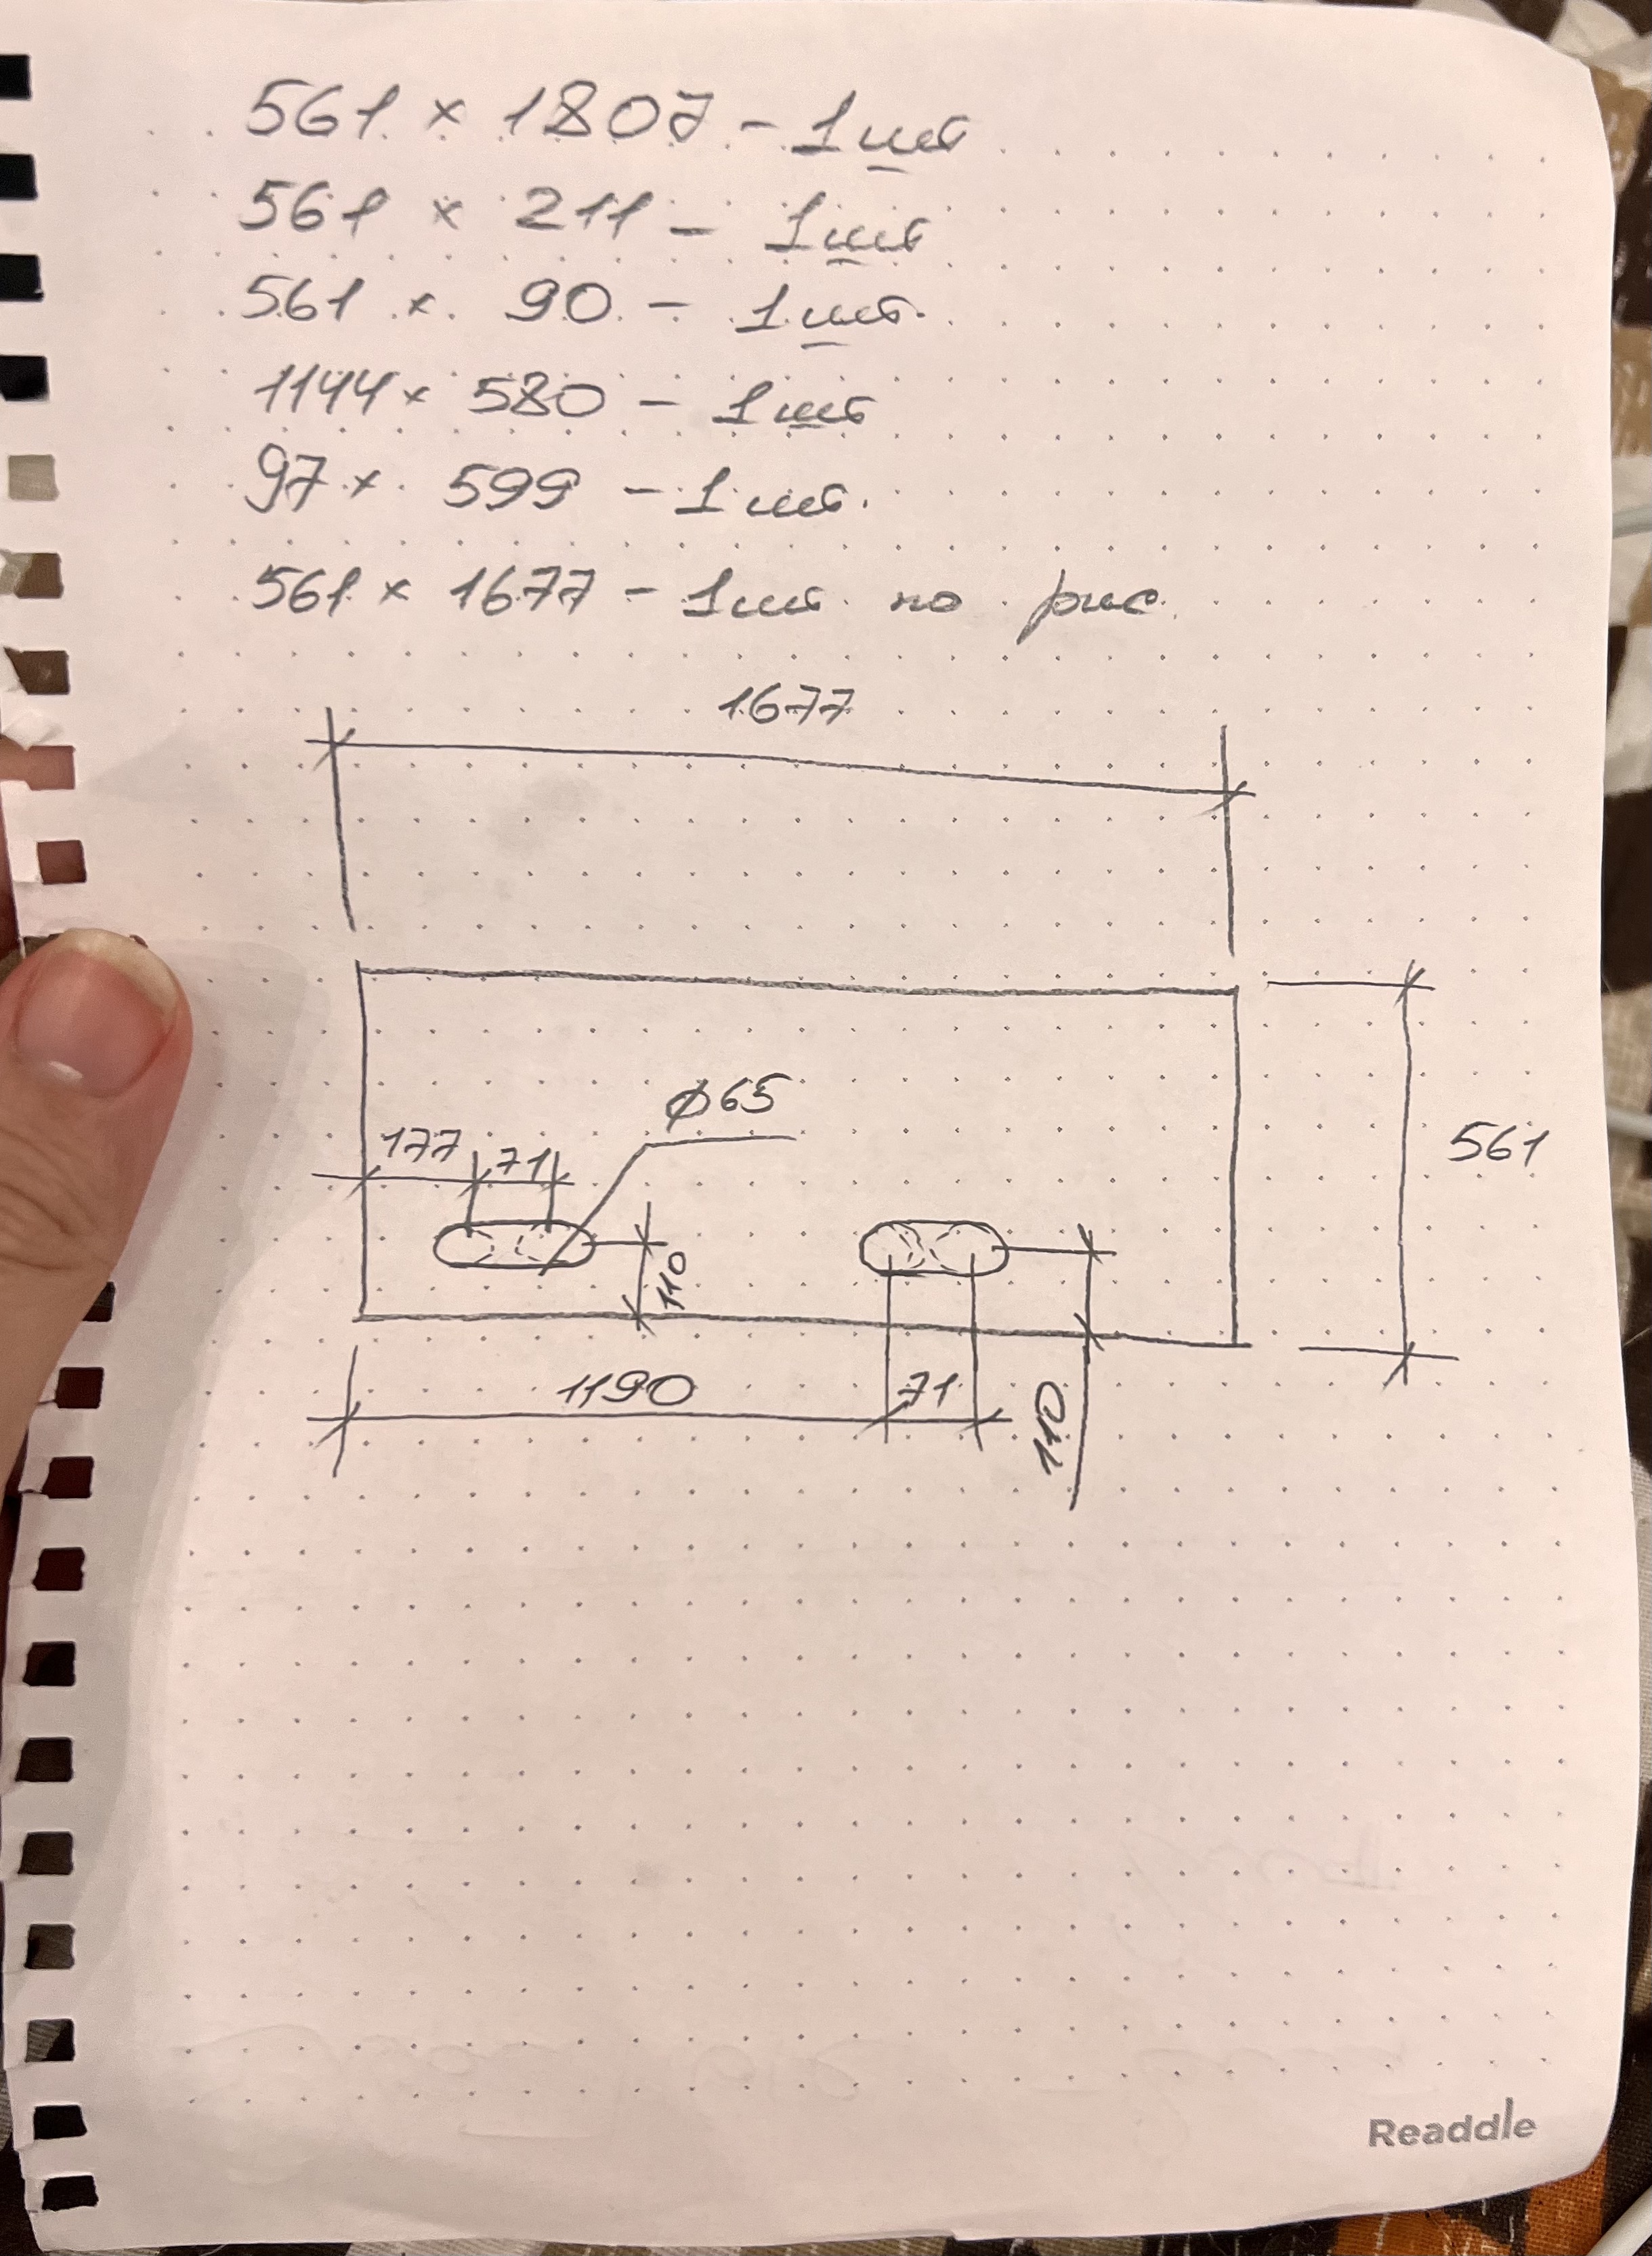 561 × 1807 - 1 шт
561 × 211 - 1 шт
561 × 90 - 1 шт.
1144 × 580 - 1 шт
97 × 599 - 1 шт.
561 × 1677 - 1 шт. по рис.
1677
ϕ65
177 71
561
110
1190 71
110
Readdle